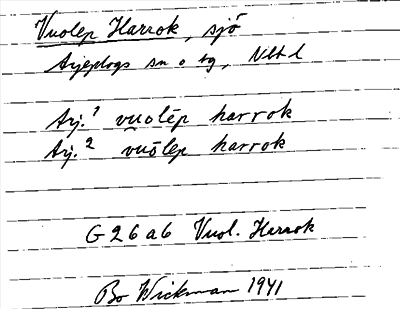 Vuolep Harrok, sjö
Arjeplogs sn o tg, Nbtl
Arj.¹ vuolēp harrok
Arj.² v̄uōlep harrok
G 26 a 6 Vuol. Harrok
Bo Wickman 1941